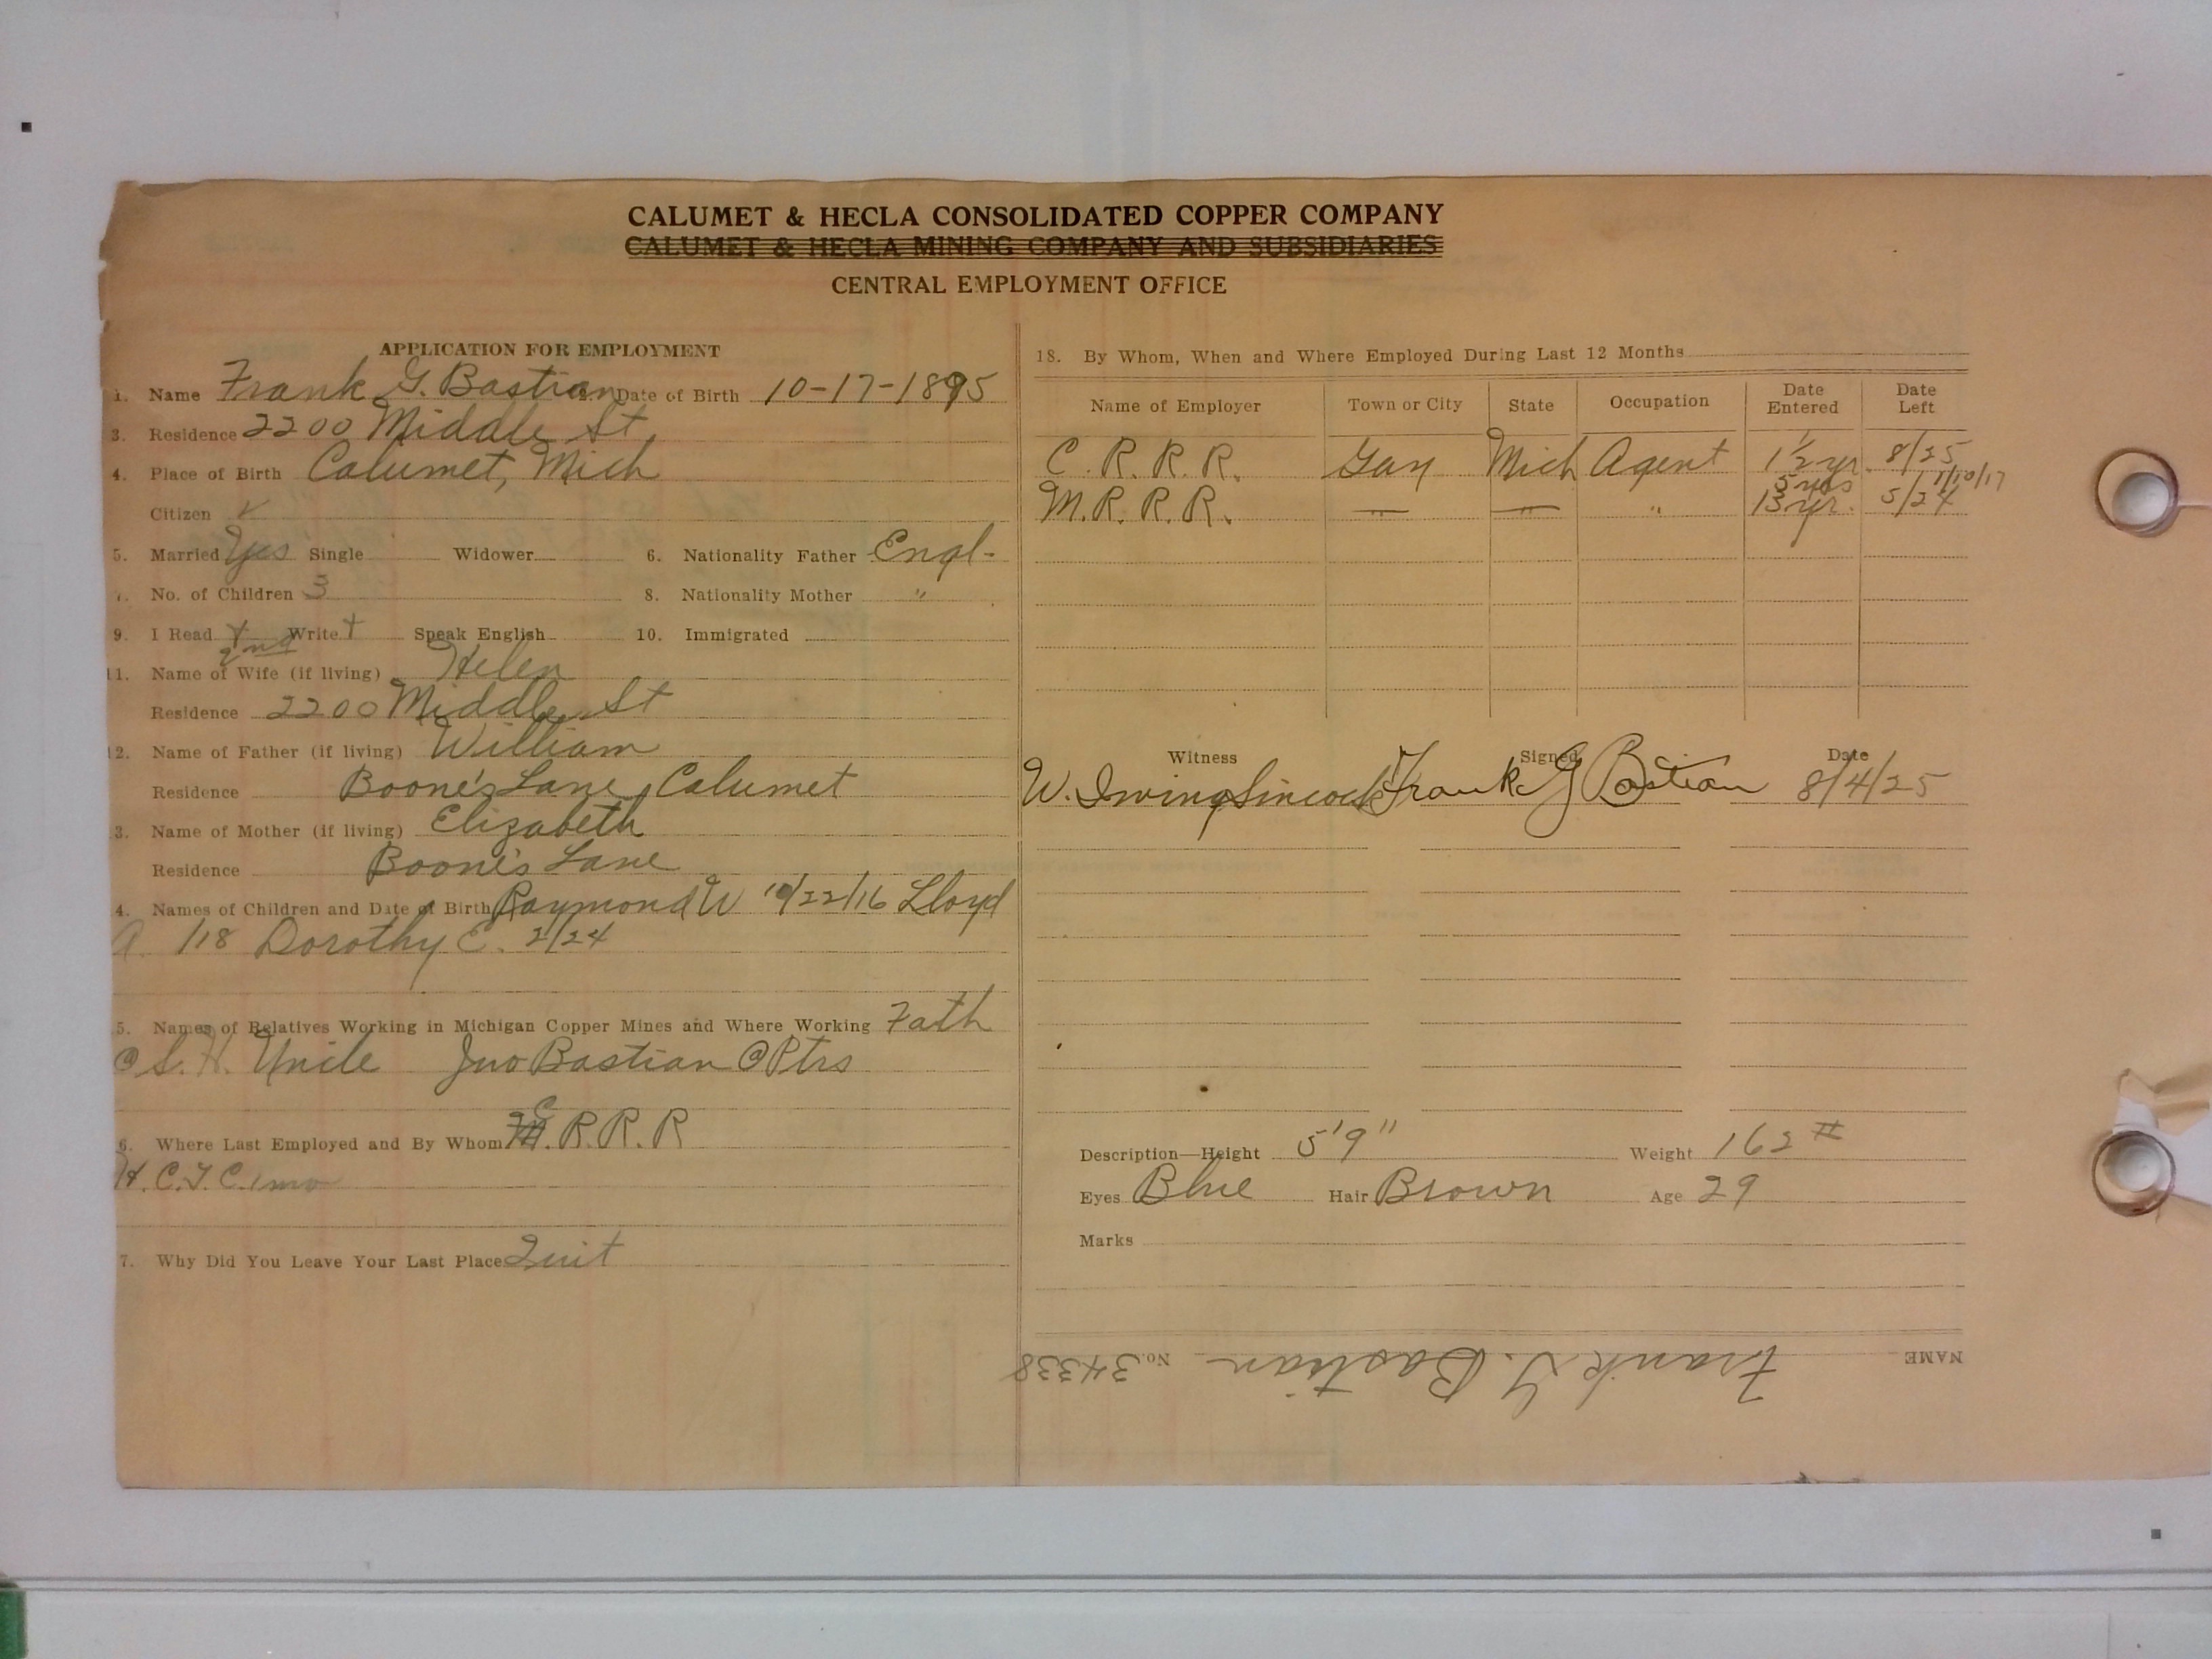 CALUMET & HECLA CONSOLIDATED COPPER COMPANY
CALUMET & HECLA MINING COMPANY AND SUBSIDIARIES
CENTRAL EMPLOYMENT OFFICE
APPLICATION FOR EMPLOYMENT
1. Name Frank G. Bastian Date of Birth 10-17-1895
3. Residence 2200 Middle St.
4. Place of Birth Calumet, Mich
Citizen ✓
5. Married Yes Single Widower 6. Nationality Father Engl-
7. No. of Children 3 8. Nationality Mother "
9. I Read + Write + Speak English 10. Immigrated
2nd
11. Name of Wife (if living) Helen
Residence 2200 Middle St
12. Name of Father (if living) William
Residence Boone's Lane, Calumet
3. Name of Mother (if living) Elizabeth
Residence Boone's Lane
4. Names of Children and Date of Birth Raymond W 10/22/16 Lloyd
A. 1/18 Dorothy E. 2/24
5. Names of Relatives Working in Michigan Copper Mines and Where Working Fath
@ S. H. Uncle Jno Bastian @ Ptrs
6. Where Last Employed and By Whom C R. R. R
H. C. 1 mo
7. Why Did You Leave Your Last Place Quit
18. By Whom, When and Where Employed During Last 12 Months
Name of Employer Town or City State Occupation Date Entered Date Left
C. R. R. R. Gay Mich Agent 1½ yr. 8/25
5 yrs 1/10/17
M. R. R. R. — — " 13 yr. 5/24
Witness Signed Date
W. Irving Sincock Frank G Bastian 8/4/25
Description—Height 5'9" Weight 162 #
Eyes Blue Hair Brown Age 29
Marks
NAME Frank G. Bastian No. 34338